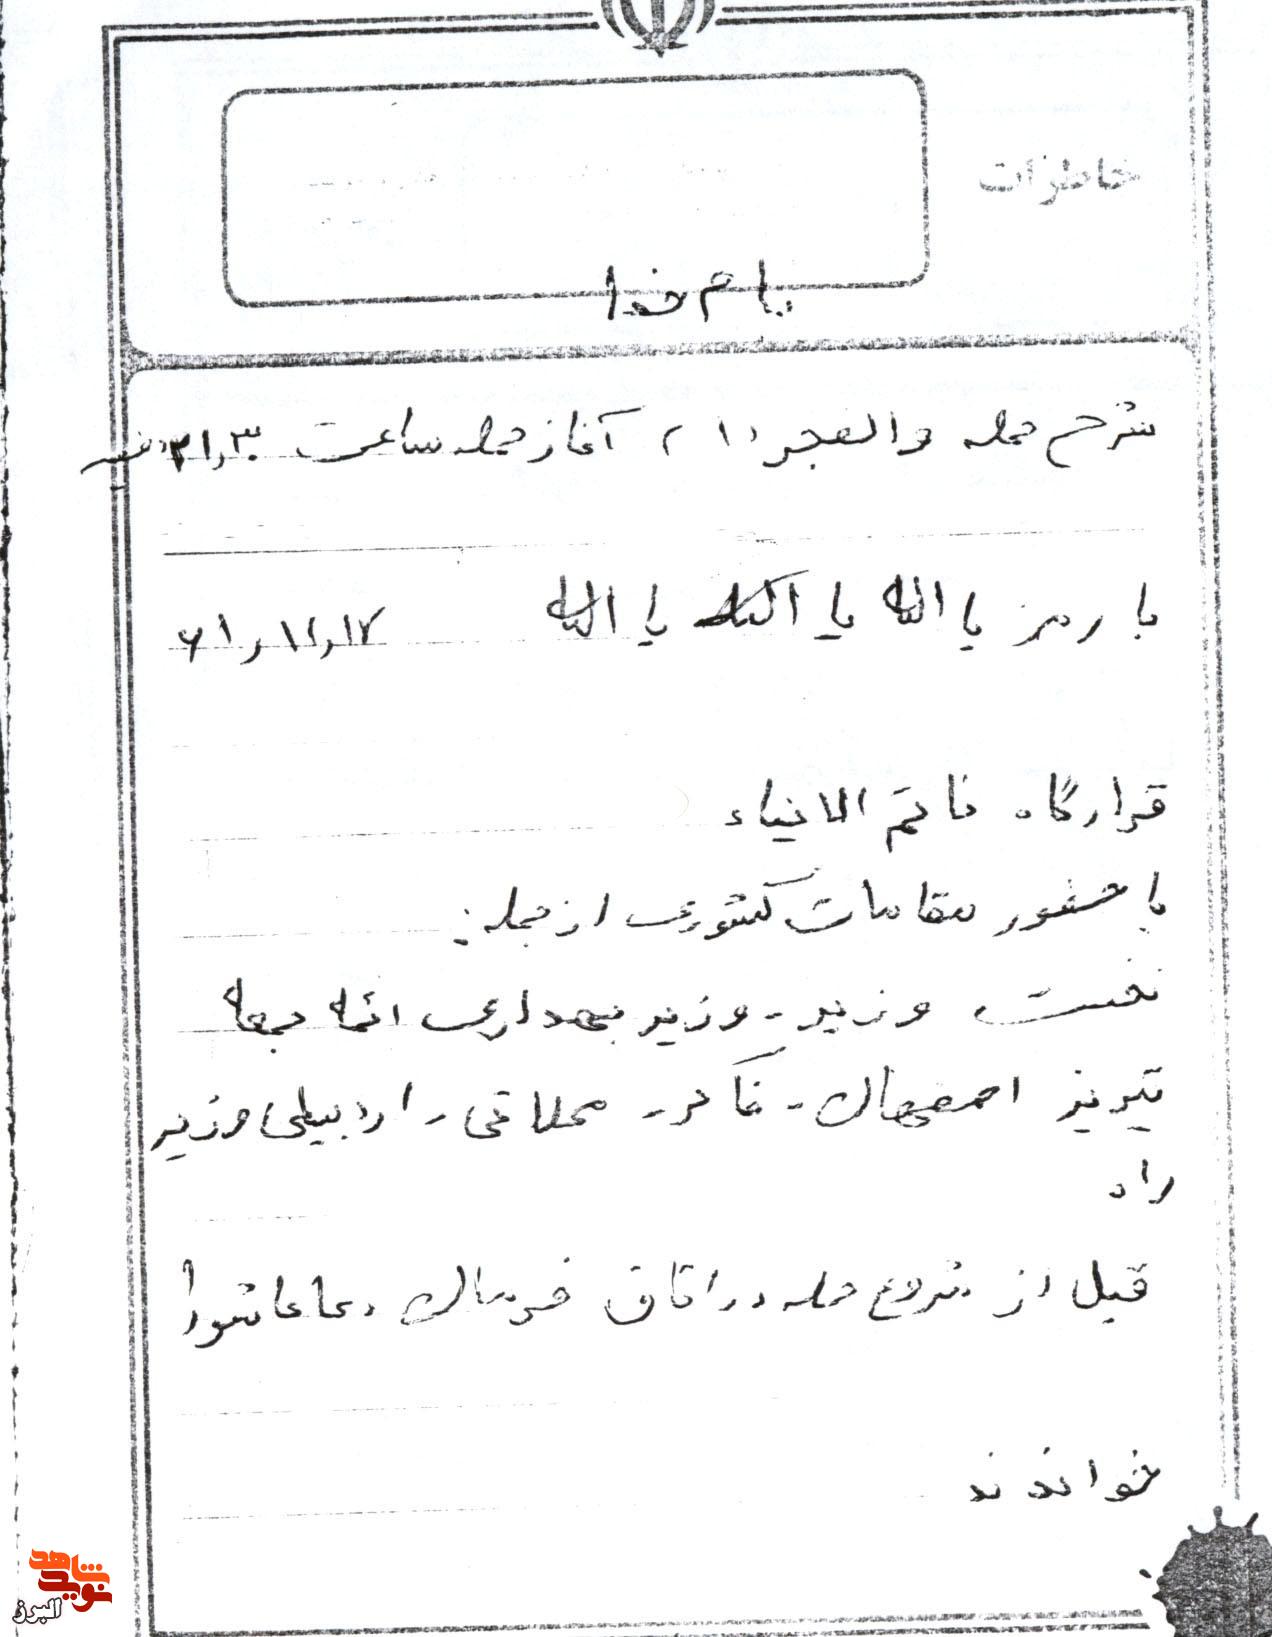 خاطرات
بنام خدا
شرح حمله والفجر (۱) آغاز حمله ساعت ۲۱٫۳۰ دقیقه
با رمز یا الله یا الله یا الله ۶۱٫۱۱٫۱۷
قرارگاه خاتم الانبیاء
با حضور مقامات کشوری از جمله:
نخست وزیر - وزیر بهداری ائمه جمعه
تبریز اصفهان - محلاتی - اردبیلی وزیر
راه
قبل از شروع حمله در اتاق فرمان دعا عاشورا
خواندند
نوید شاهد
البرز